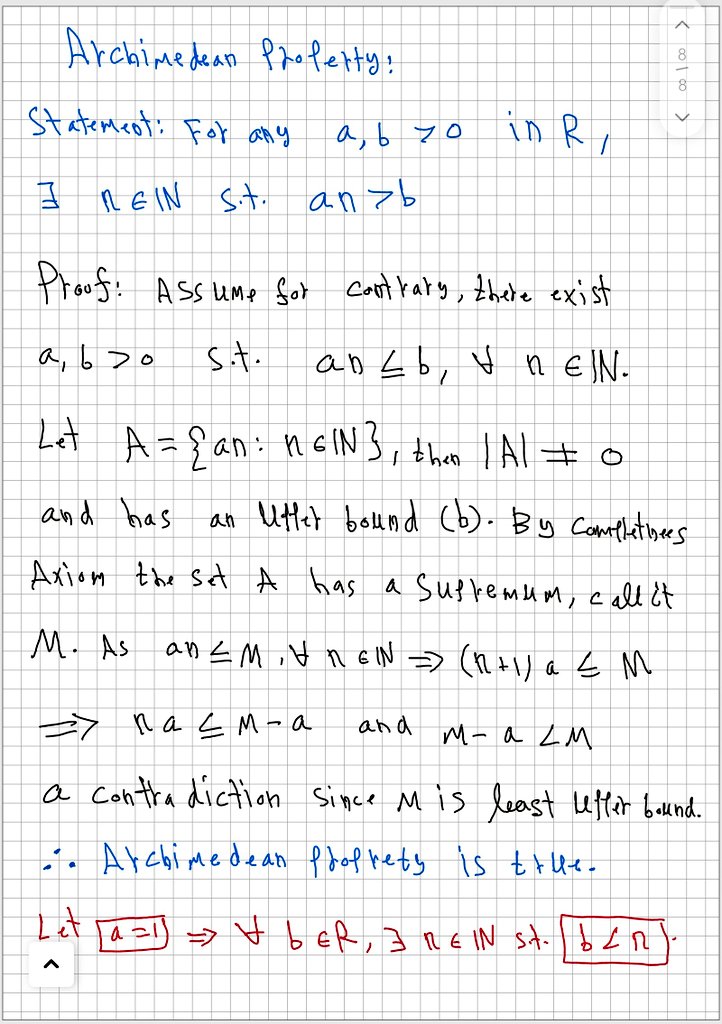 Archimedean Property:
8
8
Statement: For any a, b > 0 in R,
∃ n ∈ ℕ s.t. an > b
Proof: Assume for contrary, there exist
a, b > 0 s.t. an ≤ b, ∀ n ∈ ℕ.
Let A = {an : n ∈ ℕ}, then |A| ≠ 0
and has an upper bound (b). By Completnees
Axiom the set A has a supremum, call it
M. As an ≤ M, ∀ n ∈ ℕ ⇒ (n+1) a ≤ M
⇒ na ≤ M - a and M - a < M
a contradiction since M is least upper bound.
∴ Archimedean proprety is true.
Let a = 1 ⇒ ∀ b ∈ R, ∃ n ∈ ℕ s.t. b < n.